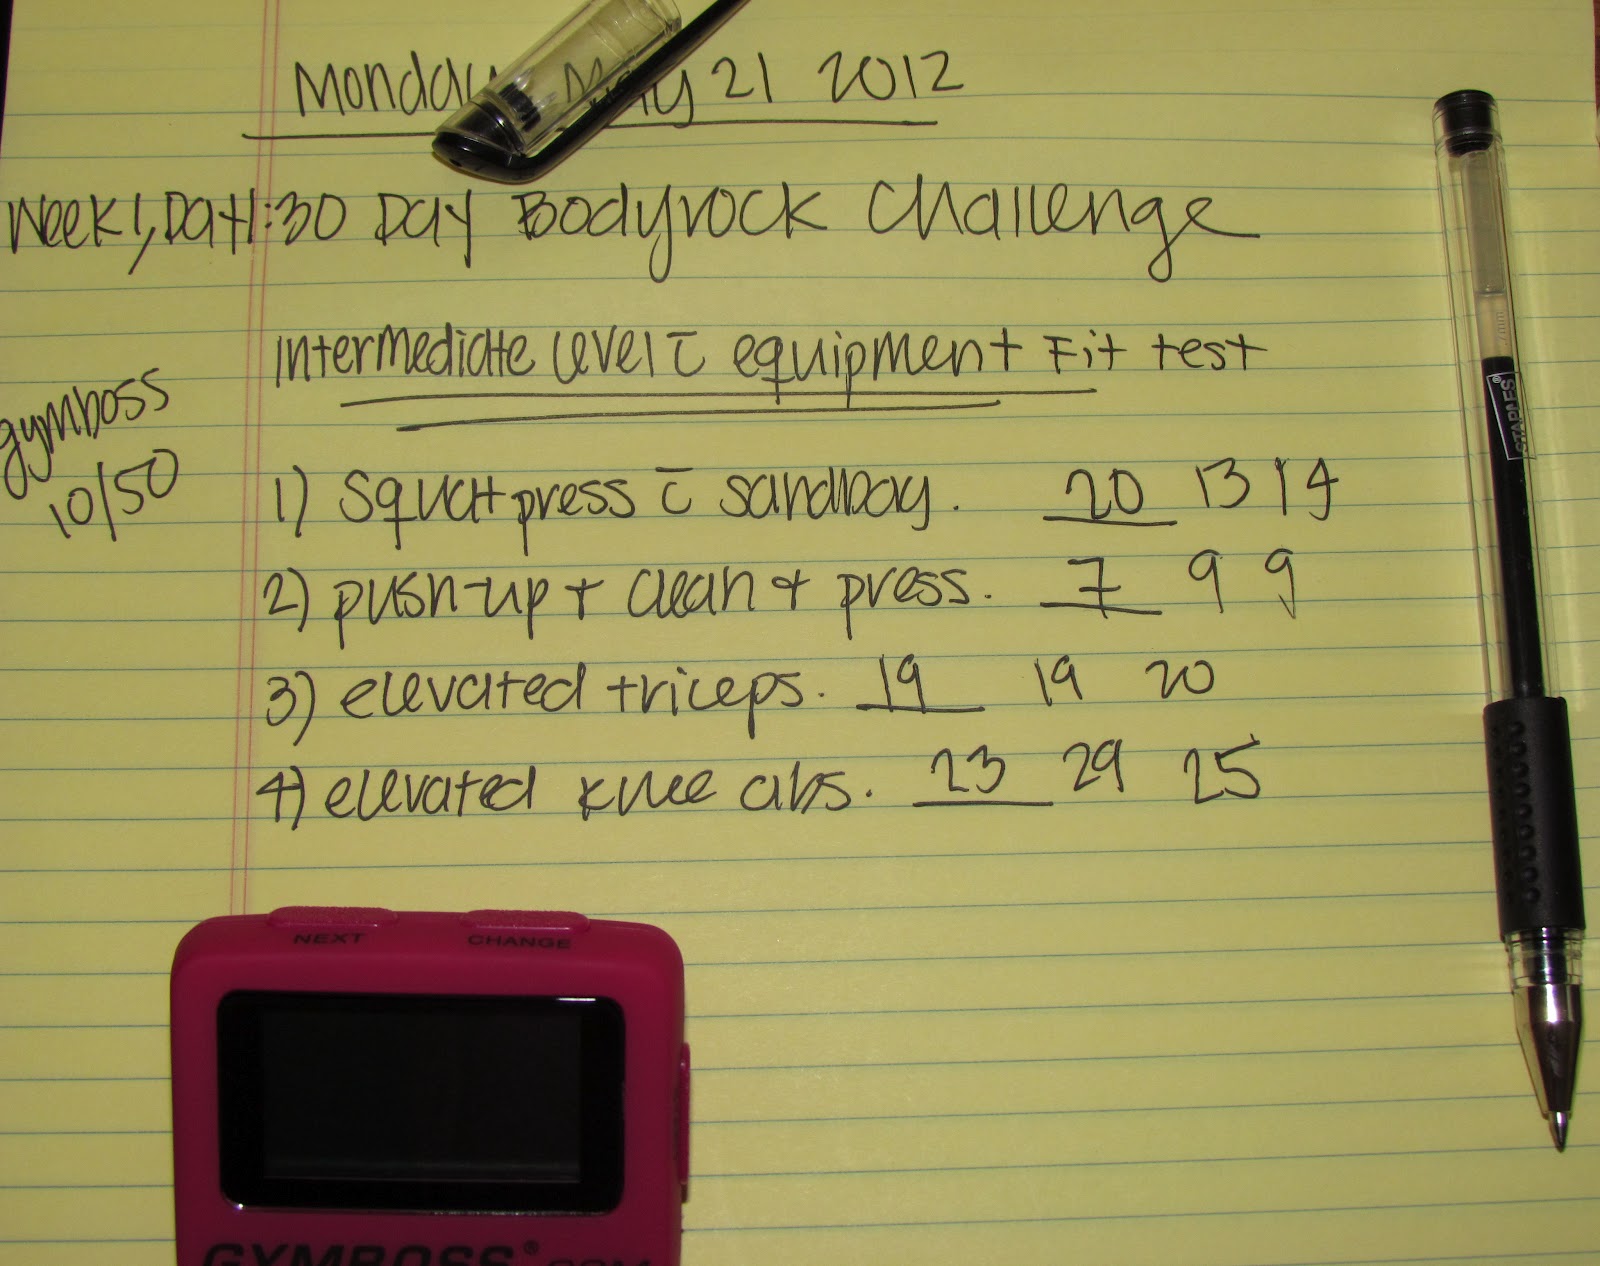 Monday May 21 2012
Week 1, Day 1: 30 Day Bodyrock Challenge
Intermediate level c̄ equipment Fit test
gymboss
10/50
1) Squat press c̄ sandbag. 20 13 14
2) push-up + clean + press. 7 9 9
3) elevated triceps. 19 19 20
4) elevated knee abs. 23 29 25
STAPLES®
NEXT CHANGE
GYMBOSS®.COM